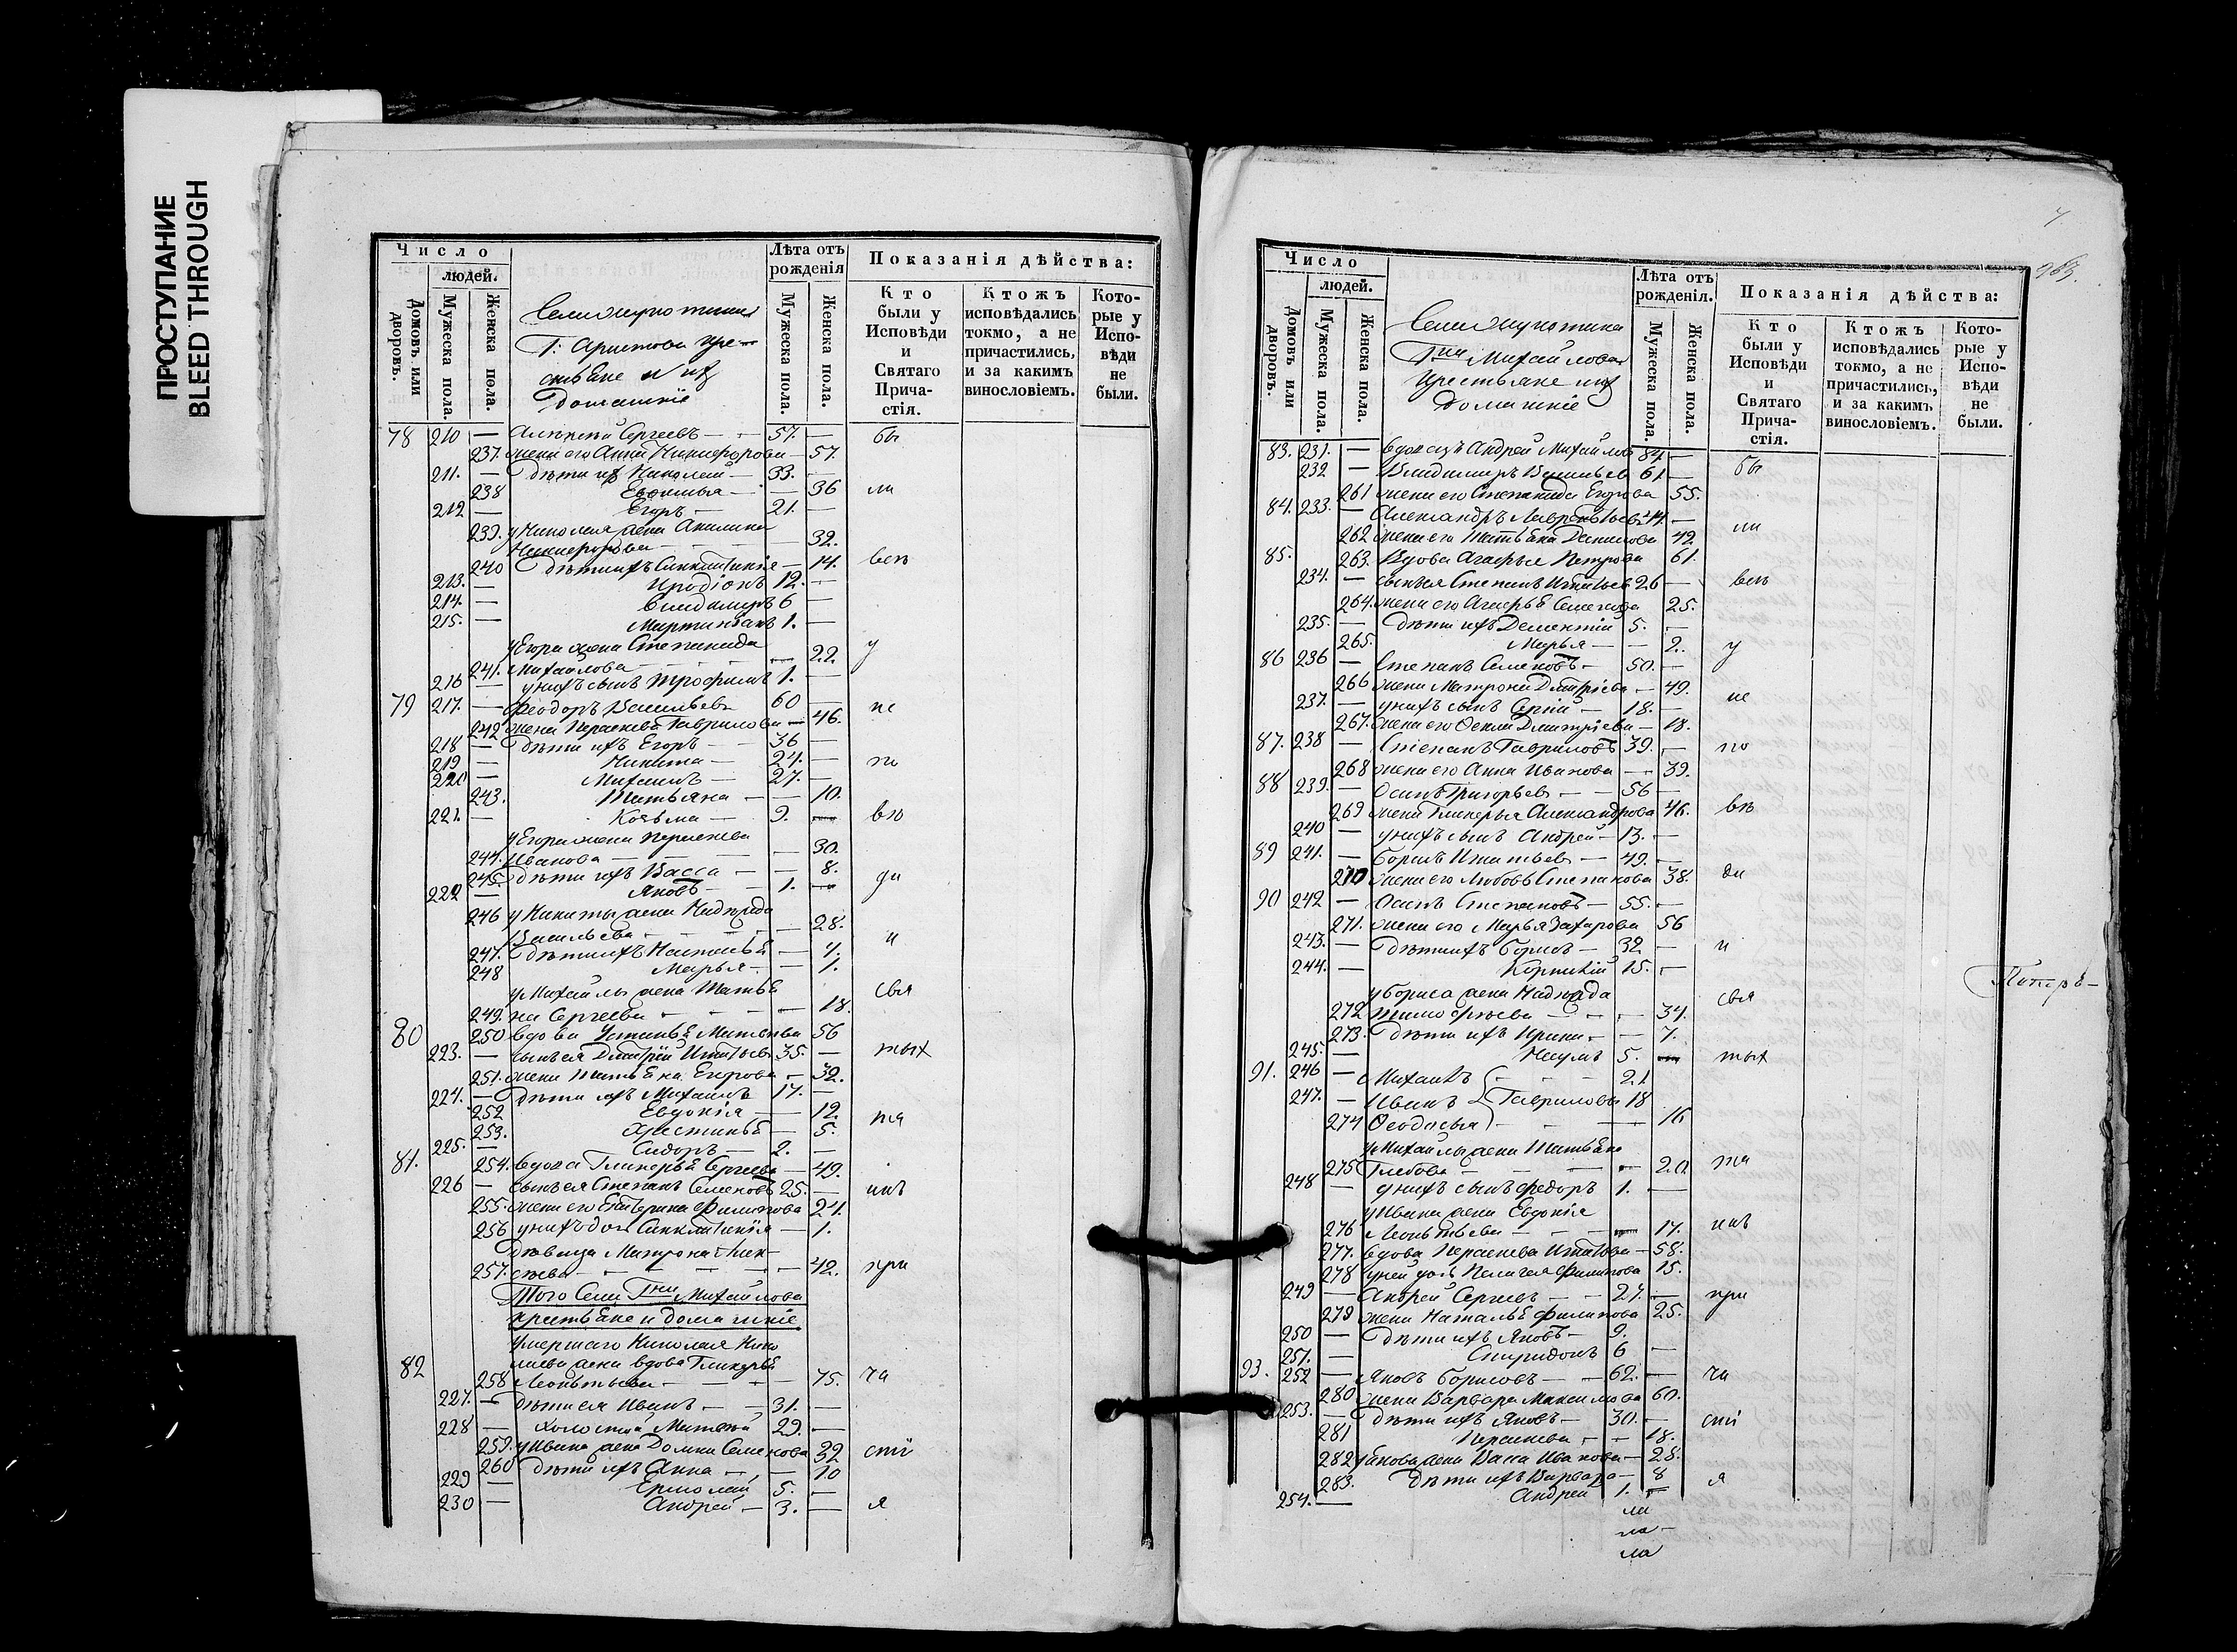 ПРОСТУПАНИЕ
BLEED THROUGH
Число
людей.
Домовъ или дворовъ.
Мужеска пола.
Женска пола.
Лѣта отъ рожденія
Мужеска пола.
Женска пола.
Показанія дѣйства:
Кто были у Исповѣди и Святаго Прича-стія.
Ктожъ исповѣдались токмо, а не причастились, и за какимъ винословіемъ.
Кото-рые у Испо-вѣди не были.
Села
Г: Аристова кре-
стьяне и ихъ
домашніе
78 210 — Алексѣй Сергеевъ — 57. — бы
237. жена его Анна Никифорова — 57.
211. — Дѣти ихъ Николай — 33. —
238 — 36 ли
212 — Егоръ — 21. —
239. у Николая жена Акилина
Никифорова — 32.
240 Дѣти ихъ Синклитикія — 14. всѣ
213. — Иродіонъ 12. —
214. — Владимеръ 6 —
215. — Мартиніанъ 1. —
у Егора жена Степанида
241. Михайлова — 22. у
216 — у нихъ сынъ Трофимъ 1. —
79 217. — Феодоръ Васильевъ 60 — ис
242 жена Параскева Гаврилова — 46.
218 — Дѣти ихъ Егоръ — 36 —
219 — Никита — 24. — по
220 — Михаилъ — 27. —
243. Татьяна — 10.
221. — Козьма — 9. — вѣ
у Егора жена Параскева
244. Иванова — 30.
245. Дѣти ихъ Васса — 8. ди
222 — Яковъ — 1. —
246 у Никиты жена Надежда
Васильева — 28. и
247. Дѣти ихъ Наталья — 4.
248 Марья — 1.
у Михайлы жена Татья
249. на Сергеева — 18. свя
80 250 вдова Устинья Матвѣева 56
223. — сынъ ея Дмитрій Игнатьевъ 35. — тых
251. жена Татьяна Егорова — 32.
224. — Дѣти ихъ Михаилъ 17. —
252 Евдокія — 12. та
253. Христинья — 5.
225. — Сидоръ — 2. —
81. 254. вдова Гликерья Сергеева — 49.
226 — сынъ ея Степанъ Семеновъ 25. — инъ
255. жена его Екатерина Филипова 24.
256 у нихъ дочь Синклитикія — 1.
Дѣвица Матрона Алек-
257. сѣева — 42. при
Того Села Г-жи Михайлова
крестьяне и домашніе
Умершаго Николая Нико
лаева жена вдова Гликерья
82 258 Леонтьева — 75. ча
227. — Дѣти ея Иванъ — 31. —
228 — холостой Матвѣй 29. —
259. у Ивана жена Домна Семенова 32 сті
260 Дѣти ихъ Анна — 10
229 — Ермолай 5. —
230 — Андрей — 3. — я
7.
Число
людей.
Домовъ или дворовъ.
Мужеска пола.
Женска пола.
Лѣта отъ рожденія.
Мужеска пола.
Женска пола.
Показанія дѣйства:
Кто были у Исповѣди и Святаго Прича-стія.
Ктожъ исповѣдались токмо, а не причастились, и за какимъ винословіемъ.
Кото-рые у Испо-вѣди не были.
Села
Г-жи Михайловой
крестьяне и ихъ
домашніе
83. 231. — вдовецъ Андрей Михайловъ 84. —
232 — Владимеръ Васильевъ 61. — бы
261 жена его Степанида Егорова 55.
84. 233. — Александръ Лаврентьевъ 44. —
262 жена его Татьяна Данилова 42 ли
85. 263. Вдова Агафья Петрова 61.
234. — сынъ ея Степанъ Игнатьевъ 26 — всѣ
264. жена его Агафья Семенова 25.
235. — Дѣти ихъ Дементій 5. —
265. Марья — 2. у
86 236 — Степанъ Семеновъ — 50. —
266 жена Матрона Дмитріева — 49. ис
237. — у нихъ сынъ Сергій — 18. —
267. жена его Фекла Дмитріева — 18.
87. 238 — Степанъ Гавриловъ 39. — по
268 жена его Анна Иванова — 39.
88 239. — Осипъ Григорьевъ — 56 —
269 жена Гликерья Александрова 46. вѣ
240 — у нихъ сынъ Андрей — 13. —
89 241. — Борисъ Игнатьевъ — 49. —
270 жена его Любовь Степанова 38. ди
90 242 — Осипъ Степановъ — 55. —
271. жена его Марья Захарова 56
243. — Дѣти ихъ Борисъ — 32 — и
244. — Корнилій 15. —
у Бориса жена Надежда
272 Тимофеева — 34. свя
273. Дѣти ихъ Ирина — 7.
245. — Наумъ 5. тых
91. 246 — Михаилъ — 21
247. — Иванъ Гавриловы 18
274 Феодосья — 16
у Михайлы жена Татьяна
275 Глебова — 20. та
248 — у нихъ сынъ Федоръ 1. —
у Ивана жена Евдокія
276 Леонтьева — 17. инъ
277. вдова Параскева Игнатьева — 58.
278 у ней дочь Пелагея Филипова 15.
249 — Андрей Сергеевъ — 27. — при
279 жена Наталья Филипова 25.
250 — Дѣти ихъ Яковъ — 9.
251. — Спиридонъ 6 —
93. 252 — Яковъ Борисовъ — 62. — ча
280 жена Варвара Максимова 60.
253. — Дѣти ихъ Яковъ — 30. — сті
281 Параскева — 18.
282 у Якова жена Васса Иванова — 28.
283. Дѣти ихъ Варвара — 8 я
254. — Андрей 1. —